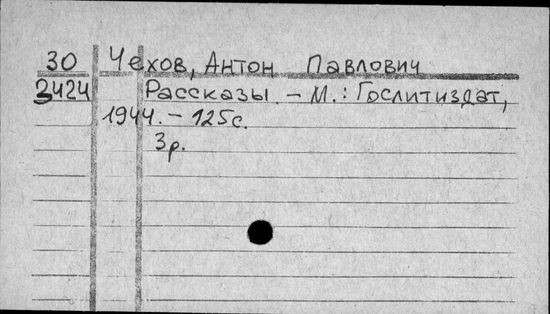 30 Чехов, Антон Павлович
3424 Рассказы. – М.: Гослитиздат,
1944. – 125с.
3р.